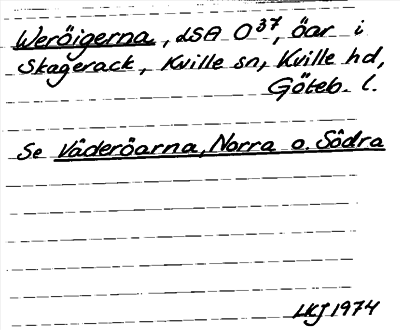 Weröigerna, dSA O37, öar i
Skagerack, Kville sn, Kville hd,
Göteb. l.
Se Väderöarna, Norra o. Södra
HKJ 1974